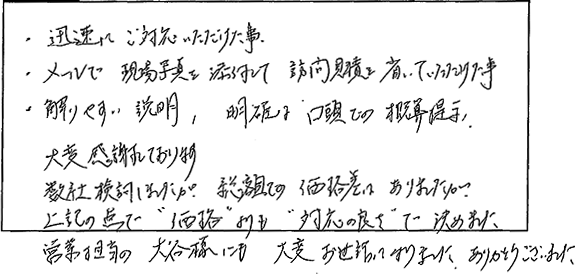 ・迅速にご対応いただけた事.
・メールで現場写真を添付して訪問見積を省いていただけた事
・解りやすい説明, 明確な口頭での概算提示.
大変感謝しております
数社検討しましたが 総額での価格差は ありましたが
上記の点で"価格"よりも"対応の良さ"で決めました
営業担当の大谷様にも 大変お世話になりました. ありがとうございました.